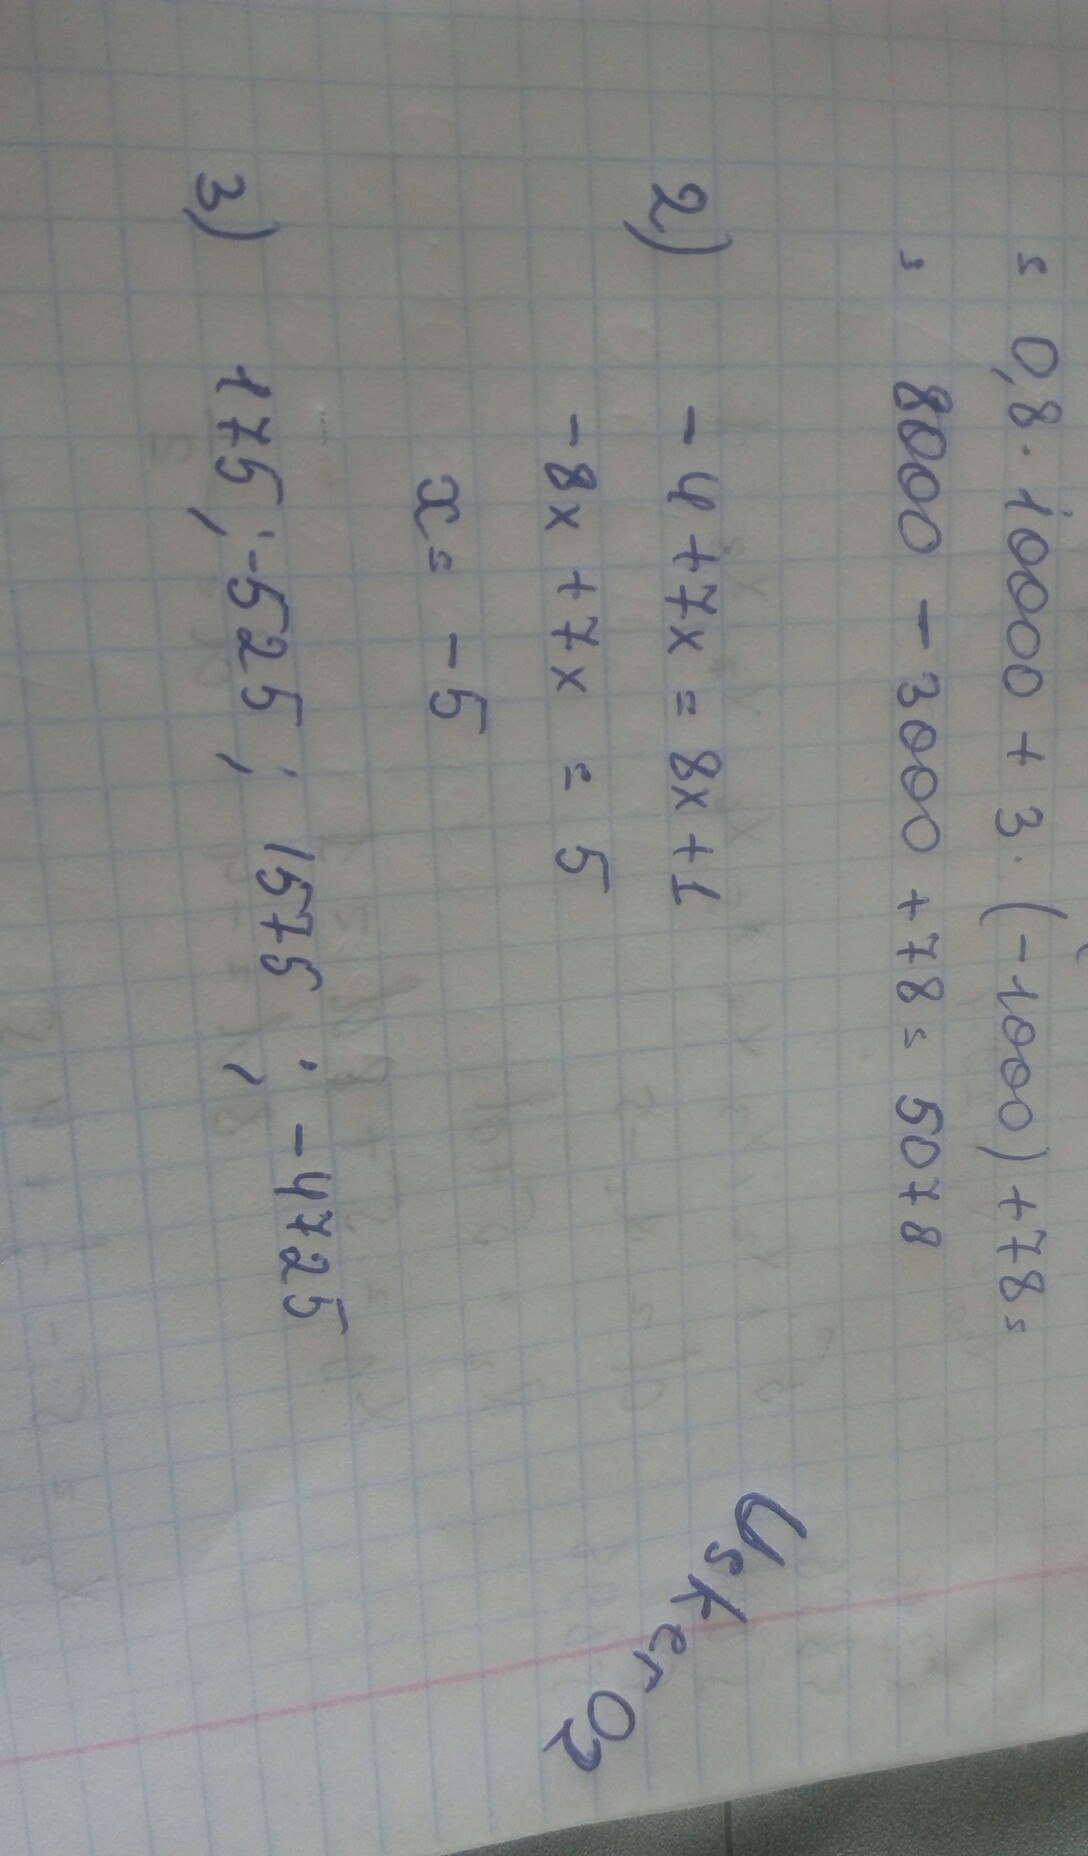 = 0,8 · 10000 + 3 · (-1000) + 78 =
= 8000 - 3000 + 78 = 5078
2) - 4 + 7x = 8x + 1
- 8x + 7x = 5
x = - 5
3) 175 ; -525 ; 1575 ; -4725
Usker02